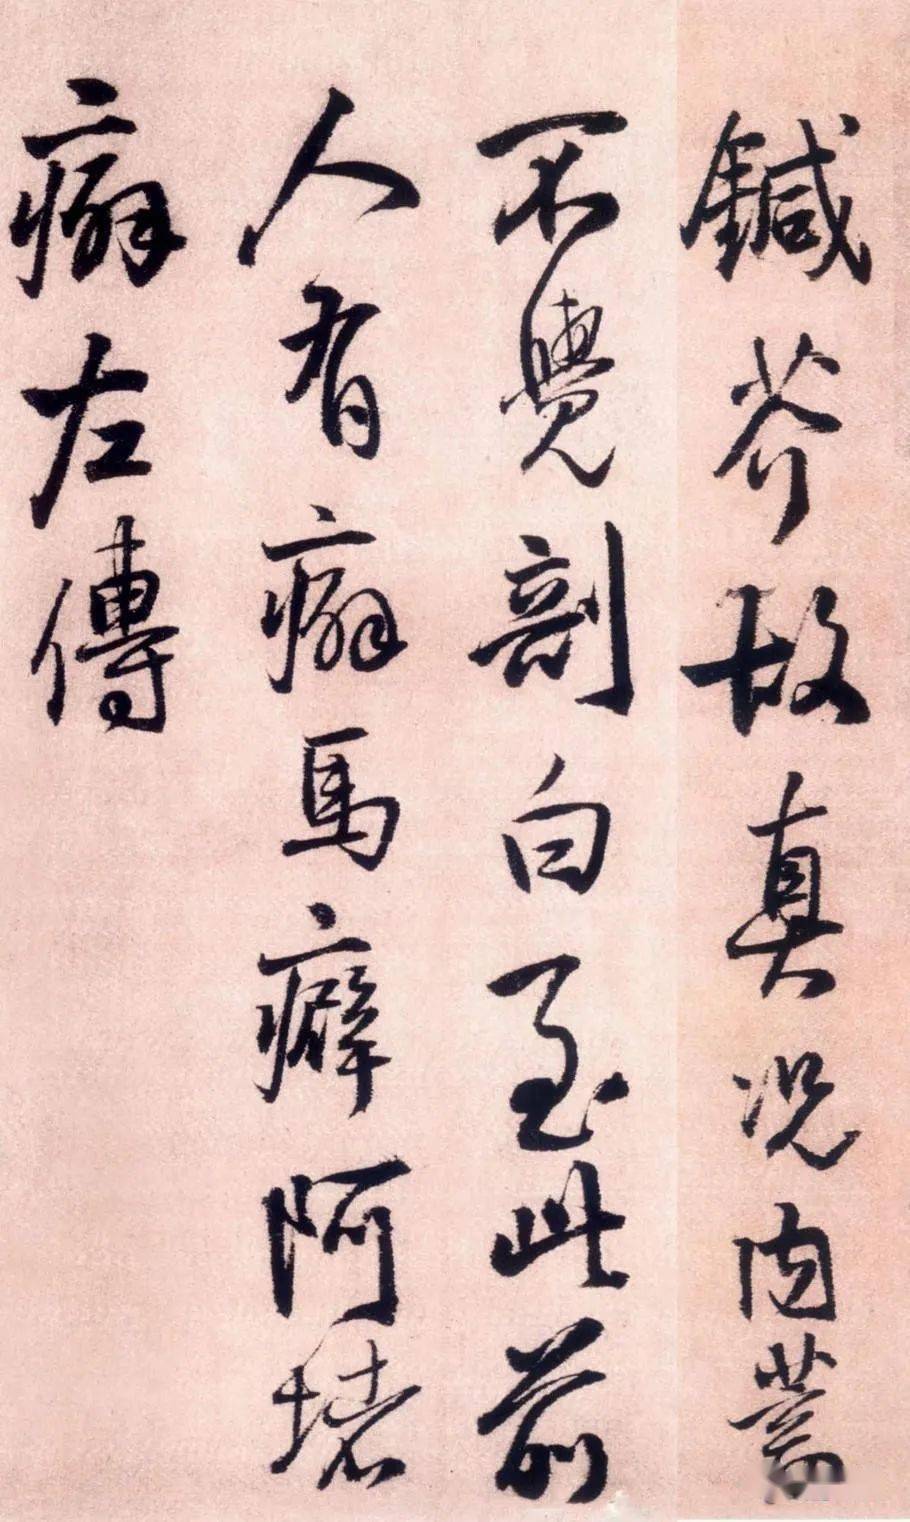 鍼芥故真况内
不覺剖白至此前
人有癖馬癖阿堵
癖左傳